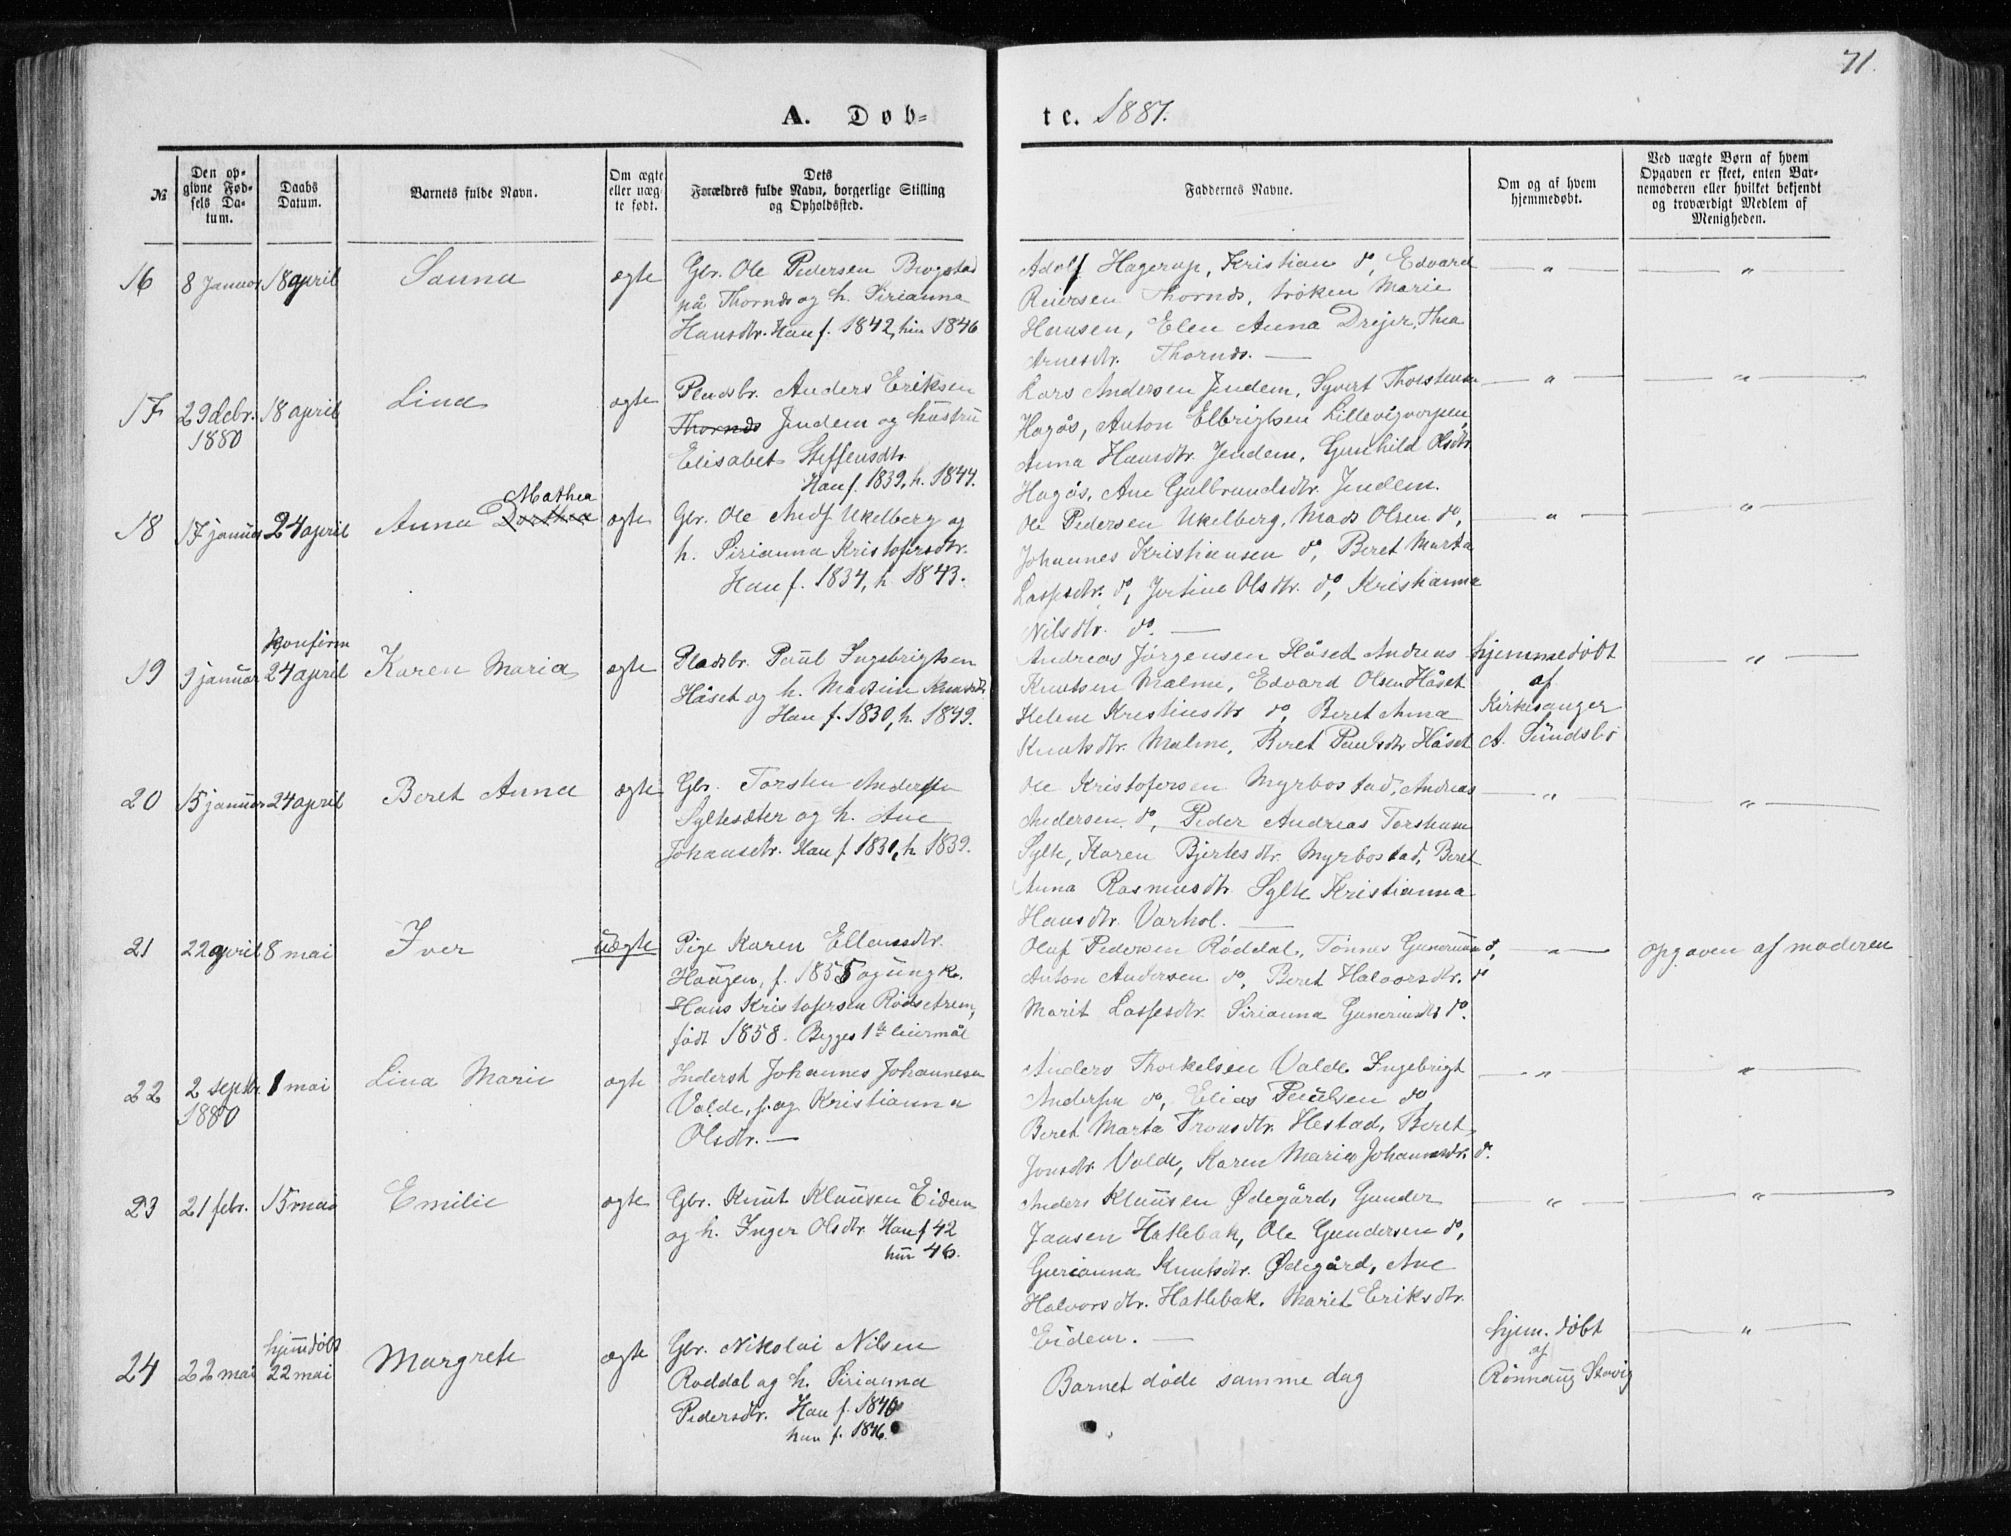 71.
A. Døb-
te. 1881.
№
Den op-
givne Fød-
sels Da-
tum.
Daabs
Datum.
Barnets fulde Navn.
Om ægte
eller uæg-
te født.
Dets
Forældres fulde Navn, borgerlige Stilling
og Opholdssted.
Faddernes Navne.
Om og af hvem
hjemmedøbt.
Ved uægte Børn af hvem
Opgaven er skeet, enten Bar-
nemoderen eller hvilket bekjendt
og troværdigt Medlem af
Menigheden.
16 8 Januar 18 april Sanna ægte
Gbr. Ole Pedersen Brogstad
på Thornds og h. Sirianna
Hansdtr. Han f. 1842, hun 1846
Adolf Hagerup, Kristian do, Edvard
Reiersen Thornds, frøken Marie
Hansen, Elen Anna Drejer, Thea
Arnesdtr. Thornds. —
— " — — " —
17 29 debr. 1880 18 april Lina ægte
Pladsbr. Anders Eriksen
Thornds Jendem og hustru
Elisabet Steffensdtr.
Han f. 1839, h. 1844.
Lars Andersen Jendem, Syvert Thorstensen
Hagås, Anton Elbrigtsen Lillevigvorpen,
Anna Hansdtr. Jendem, Gunhild Olsdtr.
Hagås, Ane Gulbrandsdtr. Jendem.
— " — — " —
18 17 januar 24 april Anna Dorthea Mathea ægte
Gbr. Ole Andr Ukelberg og
h. Sirianna Kristofersdtr.
Han f. 1834, h. 1843.
Ole Pedersen Ukelberg, Mads Olsen do,
Johannes Kristiansen do, Beret Marta
Lassesdtr. do, Jertine Olsdtr. do, Kristianna
Nilsdtr. do. —
— " — — " —
19 9 januar konfirm 24 april Karen Maria ægte
Pladsbr. Paul Ingebrigtsen
Håset og h. Madsine Knutsdtr.
Han f. 1830, h. 1849.
Andreas Jørgensen Håset Andreas
Knutsen Malme, Edvard Olsen Håset
Helene Kristiansdtr do, Beret Anna
Knutsdtr. Malme, Beret Paulsdtr Håset
hjemmedøbt
af
Kirkesanger
A. Sundsbø
— " —
20 15 januar 24 april Beret Anna ægte
Gbr. Torsten Andersen
Syltesæter og h. Ane
Johansdtr. Han f. 1831, h. 1839.
Ole Kristofersen Myrbostad, Andreas
Andersen do, Peder Andreas Torstensen
Sylte, Karen Bjertesdtr. Myrbostad, Beret
Anna Rasmusdtr. Sylte Kristianna
Hansdtr. Varhol. —
— " — — " —
21 22 april 8 mai Iver uægte
Pige Karen Ellensdtr.
Haugen, f. 1855 og ungk.
Hans Kristofersen Rødsetrem,
født 1858. Begges 1ste leiermål
Oluf Pedersen Røddal, Tønnes Gunerussen do,
Anton Andersen do, Beret Halvorsdtr. do
Marit Lassesdtr. Sirianna Gunerusdtr do.
— " — Opgaven af moderen
22 2 septbr. 1880 1 mai Lina Marie ægte
Inderst Johannes Johannesen
Valde, f. og Kristianna
Olsdtr. —
Anders Thorkelsen Valde Ingebrigt
Andersen do, Elias Paulsen do
Beret Marta Tronsdtr. Hestad, Beret
Jonsdtr. Valde, Karen Maria Johannesdtr. do.
— " — — " —
23 21 febr. 15 mai Emilie ægte
Gbr. Knut Klausen Eidem
og h. Inger Olsdtr. Han f 42
hun 46.
Anders Klausen Ødegård, Gunder
Jansen Hatlebak, Ole Gundersen do,
Gurianna Knutsdtr. Ødegård, Ane
Halvorsdtr. Hatlebak. Marit Eriksdtr.
Eidem. —
— " — — " —
24 22 mai hjemdøbt 22 mai Margrete ægte
Gbr. Nikolai Nilsen
Røddal og h. Sirianna
Pedersdtr. Han f. 1840
hun f. 1846.
Barnet døde samme dag
hjem. døbt
af
Rønnaug Stavig
— " —